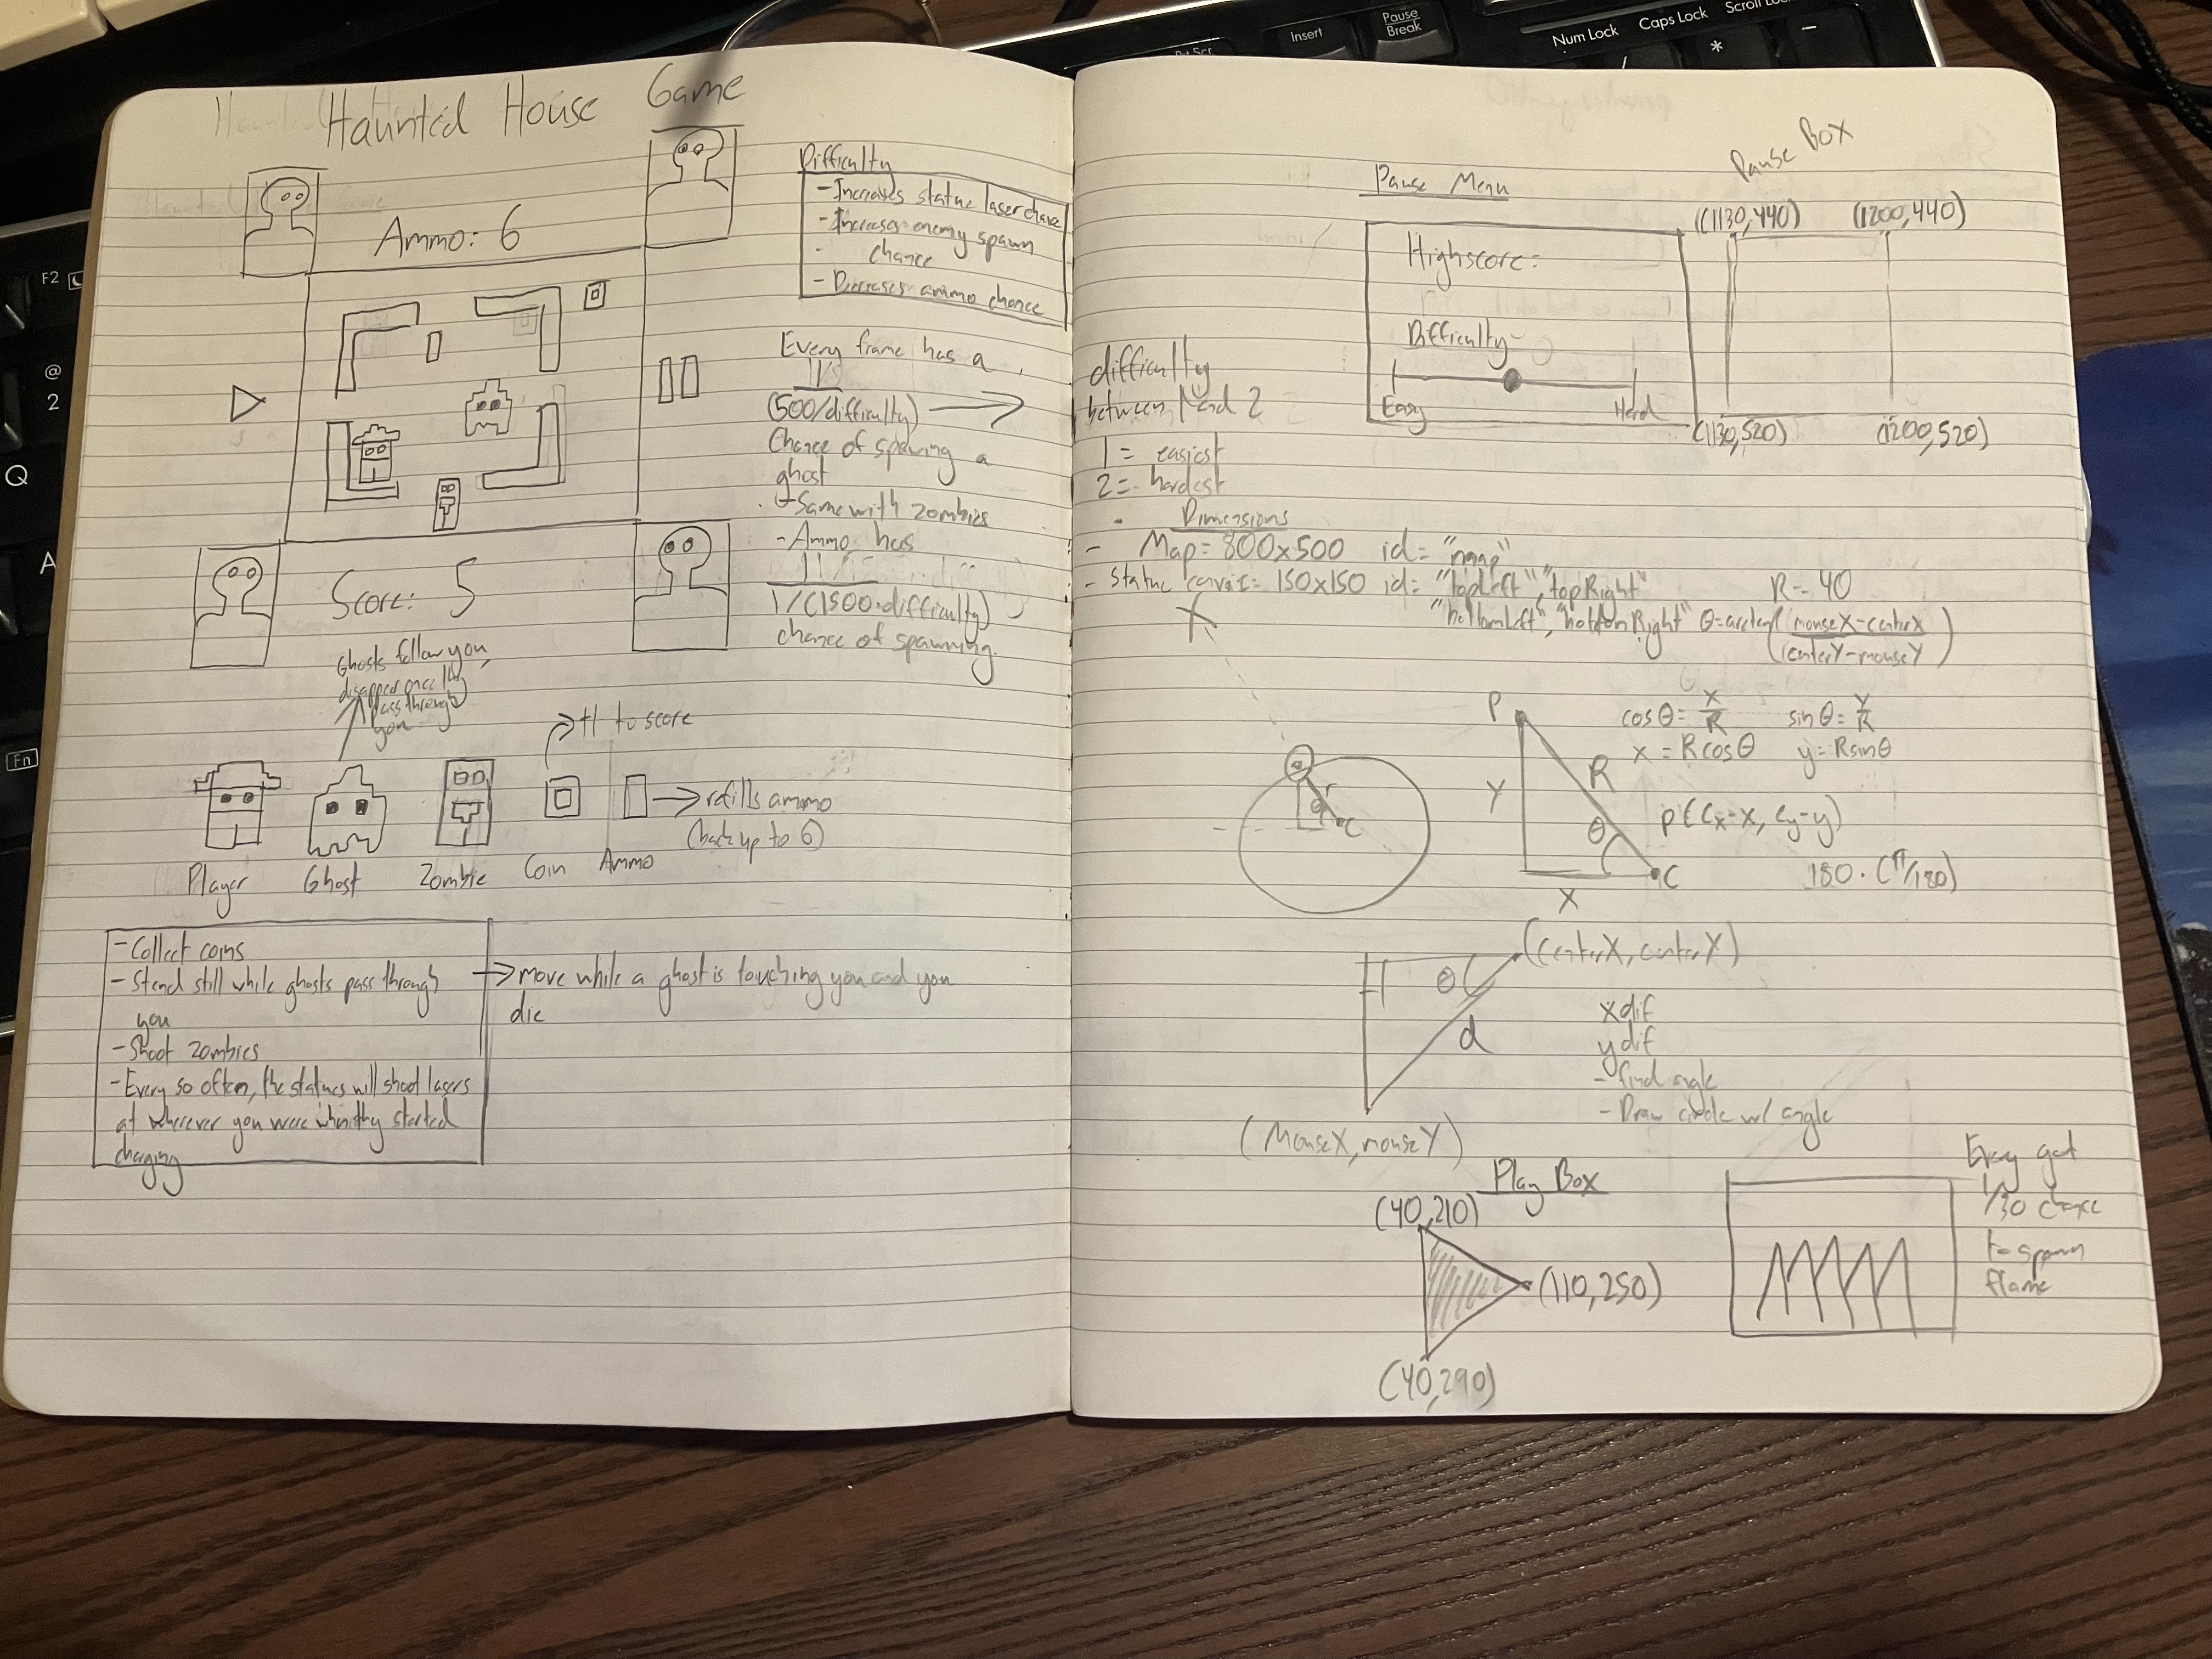 Haunted House Game
Ammo: 6
Difficulty
- Increases statue laser chance
- Increases enemy spawn
chance
- Decreases ammo chance
Every frame has a
(500/difficulty)
Chance of spawning a
ghost
- Same with zombies
- Ammo has
1/(1500·difficulty)
chance of spawning.
Score: 5
Ghosts follow you,
disappear once they
pass through
you
+1 to score
refills ammo
(back up to 6)
Player
Ghost
Zombie
Coin
Ammo
- Collect coins
- Stand still while ghosts pass through
you
- Shoot zombies
- Every so often, the statues will shoot lasers
at wherever you were when they started
charging
move while a ghost is touching you and you
die
Pause Menu
Highscore:
Difficulty
Easy
Hard
Pause Box
(1130,440)
(1200,440)
(1130,520)
(1200,520)
difficulty
between 1 and 2
1 = easiest
2 = hardest
Dimensions
- Map = 800x500 id= "map"
- Statue = 150x150 id= "topLeft", "topRight"
"bottomLeft", "bottomRight"
R = 40
θ=arctan(mouseX-centerX
centerY-mouseY)
P
R
Y
θ
X
C
cosθ = X/R
sinθ = Y/R
x = Rcosθ
y = Rsinθ
P(Cx-x, Cy-y)
180·(π/180)
r
θ
C
(centerX, centerY)
θ
d
(MouseX, mouseY)
xdif
ydif
- find angle
- Draw circle w/ angle
Play Box
(40,210)
(110,250)
(40,290)
1/30 chance
to spawn
flame
F2
@
2
Q
A
Fn
Insert
Pause
Break
Num Lock
Caps Lock
*
/
-